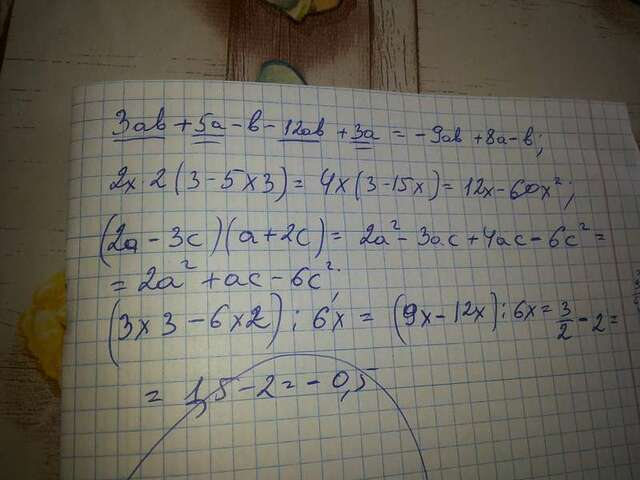 3ab + 5a - b - 12ab + 3a = -9ab + 8a - b;
2x · 2 (3 - 5x3) = 4x (3 - 15x) = 12x - 60x²;
(2a - 3c)(a + 2c) = 2a² - 3ac + 4ac - 6c² =
= 2a² + ac - 6c²;
(3x3 - 6x2) : 6x = (9x - 12x) : 6x = 3/2 - 2 =
= 1,5 - 2 = - 0,5